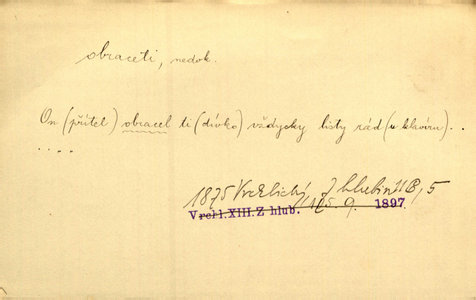 obraceti, nedok.
On (přítel) obracel ti (dívko) vždycky listy rád (u klavíru) ..
....
1875 Vrchlický, Z hlubin 118, 5
Vrchl. XIII. Z hlub. 5. 9. 1897